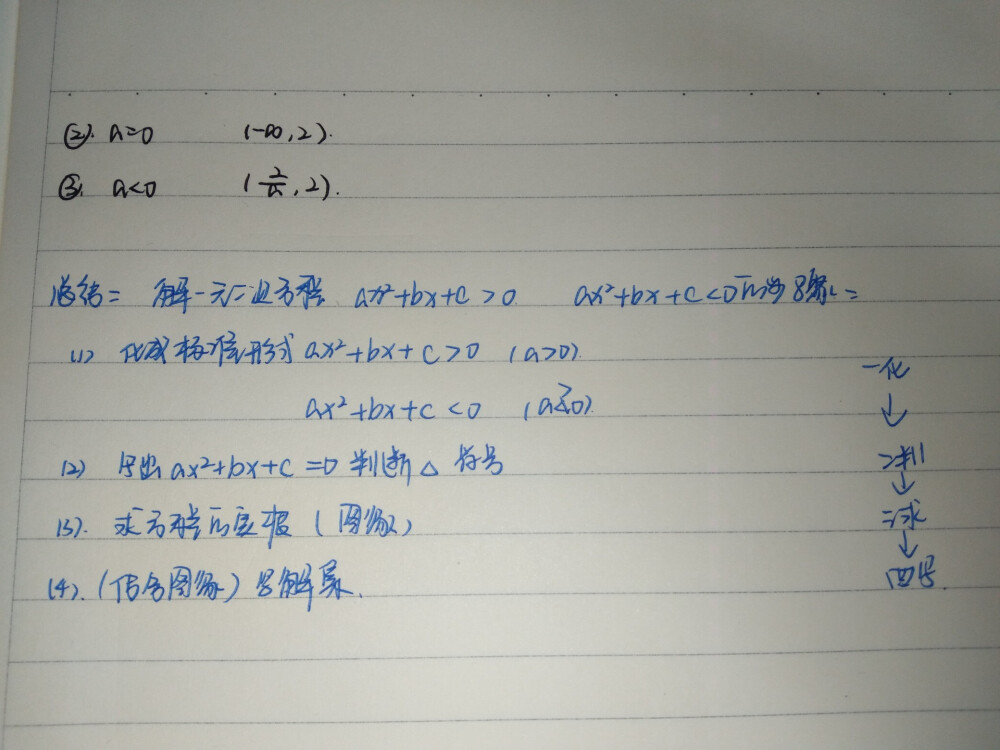 ②. a=0 (-∞,2).
③. a<0 (2/a,2).
总结: 解一元二次方程 ax²+bx+c>0 ax²+bx+c<0的步骤:
(1) 化成标准形式 ax²+bx+c>0 (a>0).
ax²+bx+c<0 (a>0).
一化
↓
(2) 写出ax²+bx+c=0判断△符号
二判
↓
(3). 求方程的实根(图像)
三求
↓
(4). (结合图像)写解集.
四写.